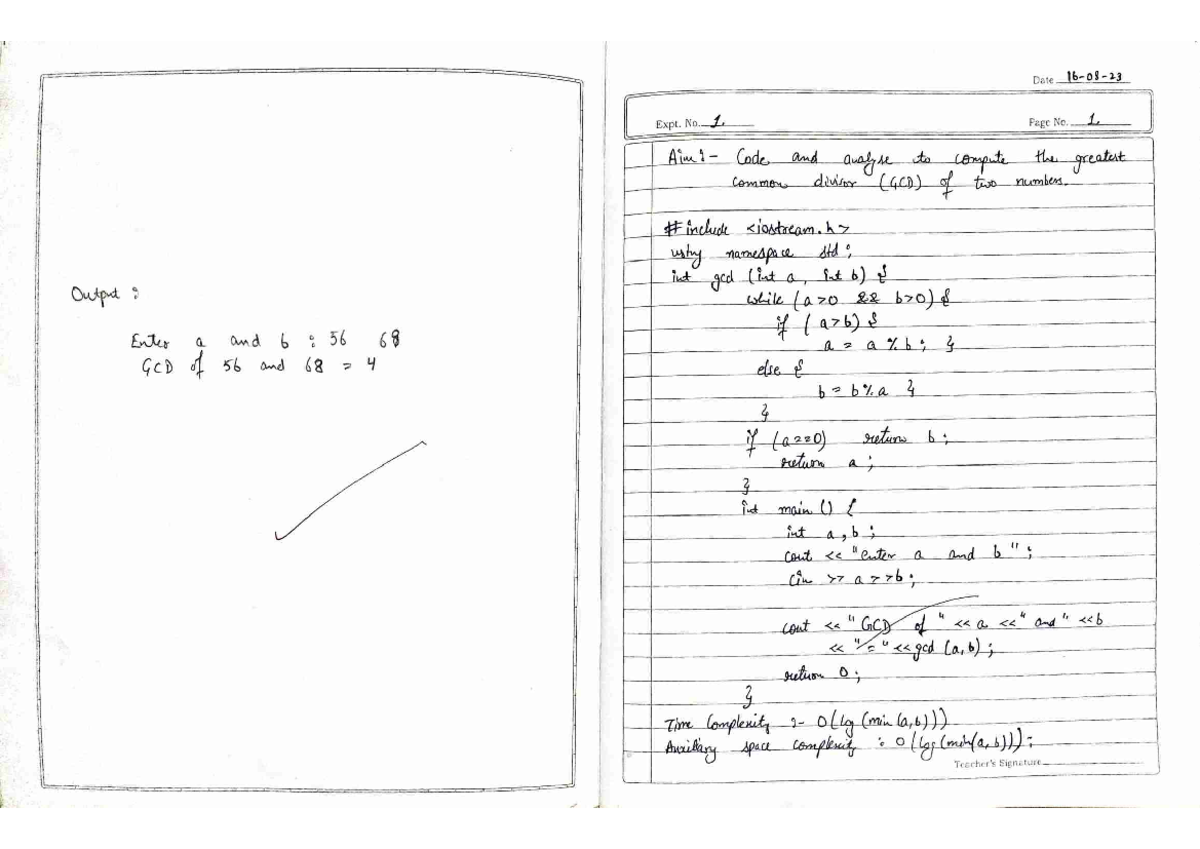 Output :
Enter a and b : 56 68
GCD of 56 and 68 = 4
Date 16-08-23
Expt. No. 1.
Page No. 1.
Aim :- Code and analyse to compute the greatest
common divisor (GCD) of two numbers.
#include <iostream.h>
using namespace std;
int gcd (int a, int b) {
while (a>0 && b>0) {
if (a>b) {
a = a % b; }
else {
b = b % a }
}
if (a==0) return b;
return a;
}
int main () {
int a, b;
cout << "enter a and b ";
cin >> a >> b;
cout << "GCD of " << a << " and " << b
<< " = " << gcd (a,b);
return 0;
}
Time Complexity :- O(log (min (a,b)))
Auxiliary space complexity : O(log(min(a,b)));
Teacher's Signature